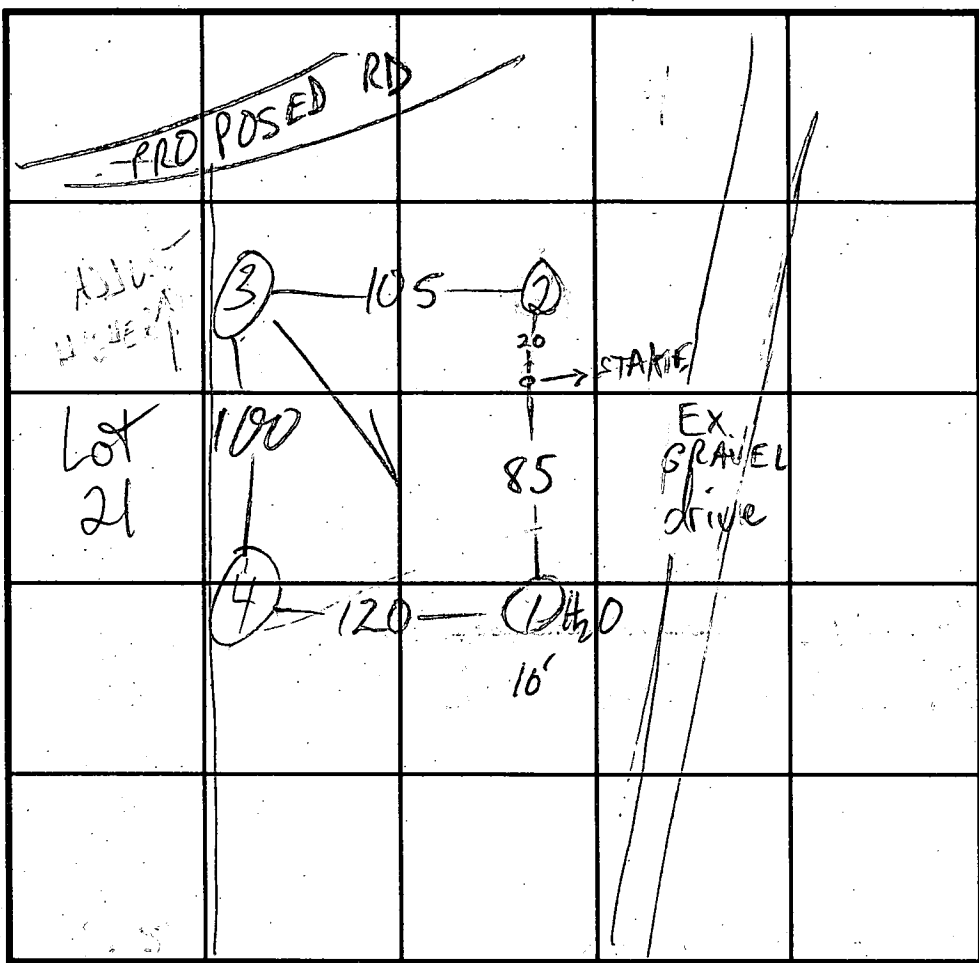 PROPOSED RD
3 105 2
20
0 → STAKE
Lot
21
100
85
Ex.
GRAVEL
drive
4 120 1 H₂O
10'